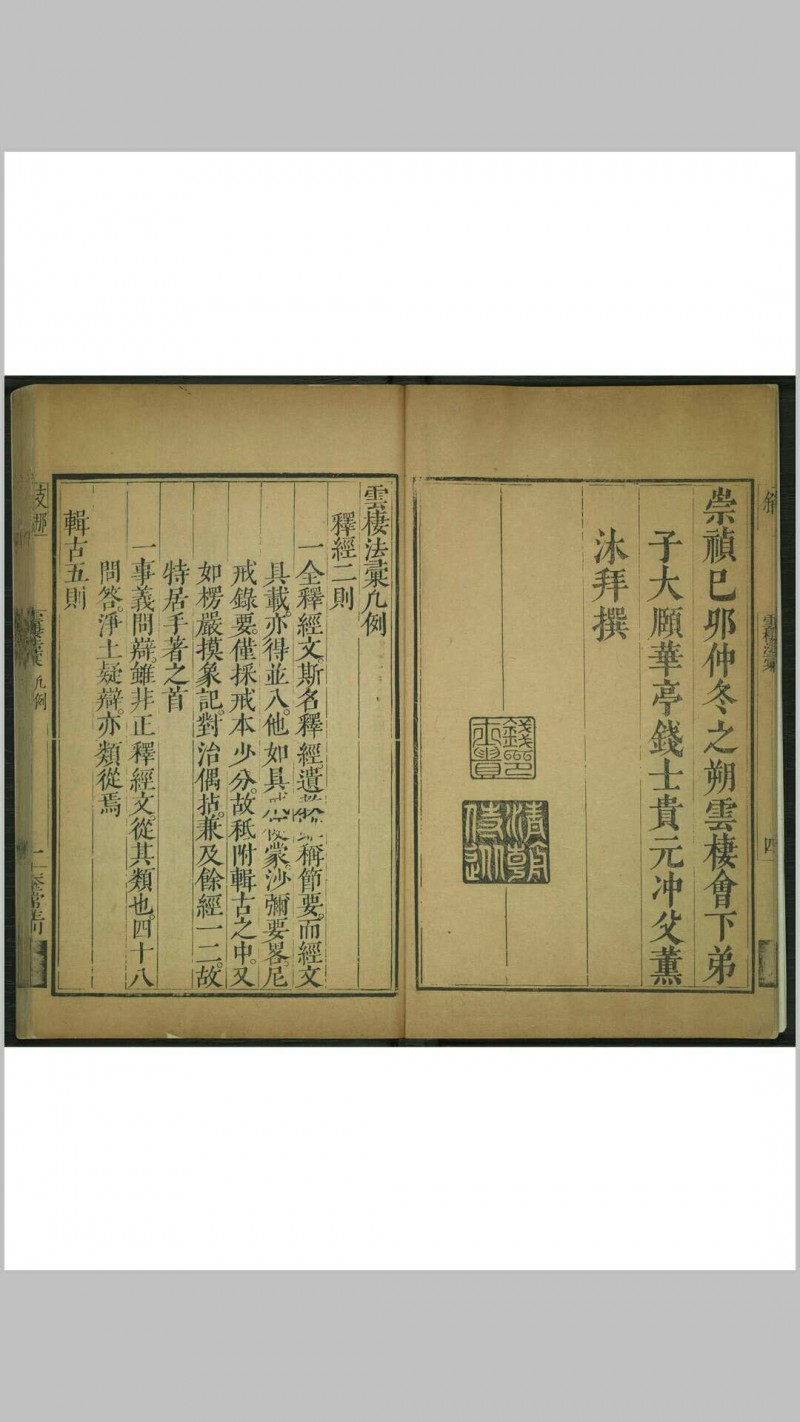 崇禎巳夘仲冬之朔雲棲會下弟
子大願華亭錢士貴元冲父薰
沐拜撰
雲棲法彚
四
雲棲法彚凡例
釋經二則
一全釋經文斯名釋經。遺教稱節要。而經文
具載。亦得並入。他如具戒便蒙。沙彌要畧。尼
戒錄要。僅採戒本少分。故秪附輯古之中。又
如楞嚴摸象記。對治偶拈。兼及餘經一二。故
特居手著之首
一事義問辯。雖非正釋經文。從其類也。四十八
問答。淨土疑辯。亦類從焉
輯古五則
凡例
一